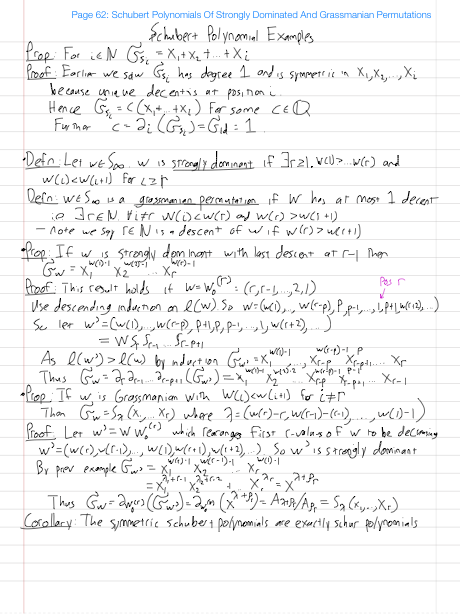 Page 62: Schubert Polynomials Of Strongly Dominated And Grassmanian Permutations
Schubert Polynomial Examples
Prop: For i∈ℕ 𝔖_{s_i} = x₁+x₂+...+x_i
Proof: Earlier we saw 𝔖_{s_i} has degree 1 and is symmetric in x₁,x₂,...,x_i
because unique decent is at position i.
Hence 𝔖_{s_i} = c(x₁+...+x_i) for some c∈ℚ
Further c = ∂_i(𝔖_{s_i}) = 𝔖_{id} = 1
•Defn: Let w∈S_∞. w is strongly dominant if ∃r≥1. w(1)>...>w(r) and
w(i)<w(i+1) for i≥r
Defn: w∈S_∞ is a grassmanian permutation if w has at most 1 decent
ie ∃r∈ℕ. ∀i≠r w(i)<w(i+1) and w(r)>w(r+1)
- note we say r∈ℕ is a descent of w if w(r)>w(r+1)
•Prop: If w is strongly dominant with last descent at r-1 then
𝔖_w = x₁^{w(1)-1} x₂^{w(2)-1} ... x_r^{w(r)-1}
Proof: This result holds if w=w₀^{(r)} = (r,r-1,...,2,1)
Pos r
Use descending induction on l(w). So w=(w(1),...,w(r-p),p,p-1,...,1,p+1,w(r+2),...)
So let w'=(w(1),...,w(r-p),p+1,p,p-1,...,1,w(r+2),...)
= w s_r s_{r-1} ... s_{r-p+1}
As l(w')>l(w) by induction 𝔖_{w'} = x₁^{w(1)-1},...,x_{r-p}^{w(r-p)-1} x_{r-p+1}^p ... x_r
Thus 𝔖_w = ∂_r ∂_{r-1} ... ∂_{r-p+1}(𝔖_{w'}) = x₁^{w(1)-1} x₂^{w(2)-1} ... x_{r-p}^{w(r-p)-1} x_{r-p+1}^{p-1} ... x_{r-1}
•Prop: If w is Grassmanian with w(i)<w(i+1) for i≠r
Then 𝔖_w = S_λ(x₁,...,x_r) where λ=(w(r)-r,w(r-1)-(r-1),...,w(1)-1)
Proof: Let w'=w w₀^{(r)} which rearanges first r-values of w to be decreasing
w'=(w(r),w(r-1),...,w(1),w(r+1),w(r+2),...) So w' is strongly dominant
By prev example 𝔖_{w'} = x₁^{w(r)-1} x₂^{w(r-1)-1} ... x_r^{w(1)-1}
= x₁^{λ₁+r-1} x₂^{λ₂+r-2} ... x_r^{λ_r} = x^{λ+ρ_r}
Thus 𝔖_w = ∂_{w₀^{(r)}}(𝔖_{w'}) = ∂_{w₀^{(r)}}(x^{λ+ρ_r}) = A_{λ+ρ_r}/A_{ρ_r} = S_λ(x₁,...,x_r)
Corollary: The symmetric schubert polynomials are exactly schur polynomials